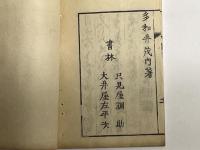 多和井茂内著
書林
只見屋調助
大井屋左平次